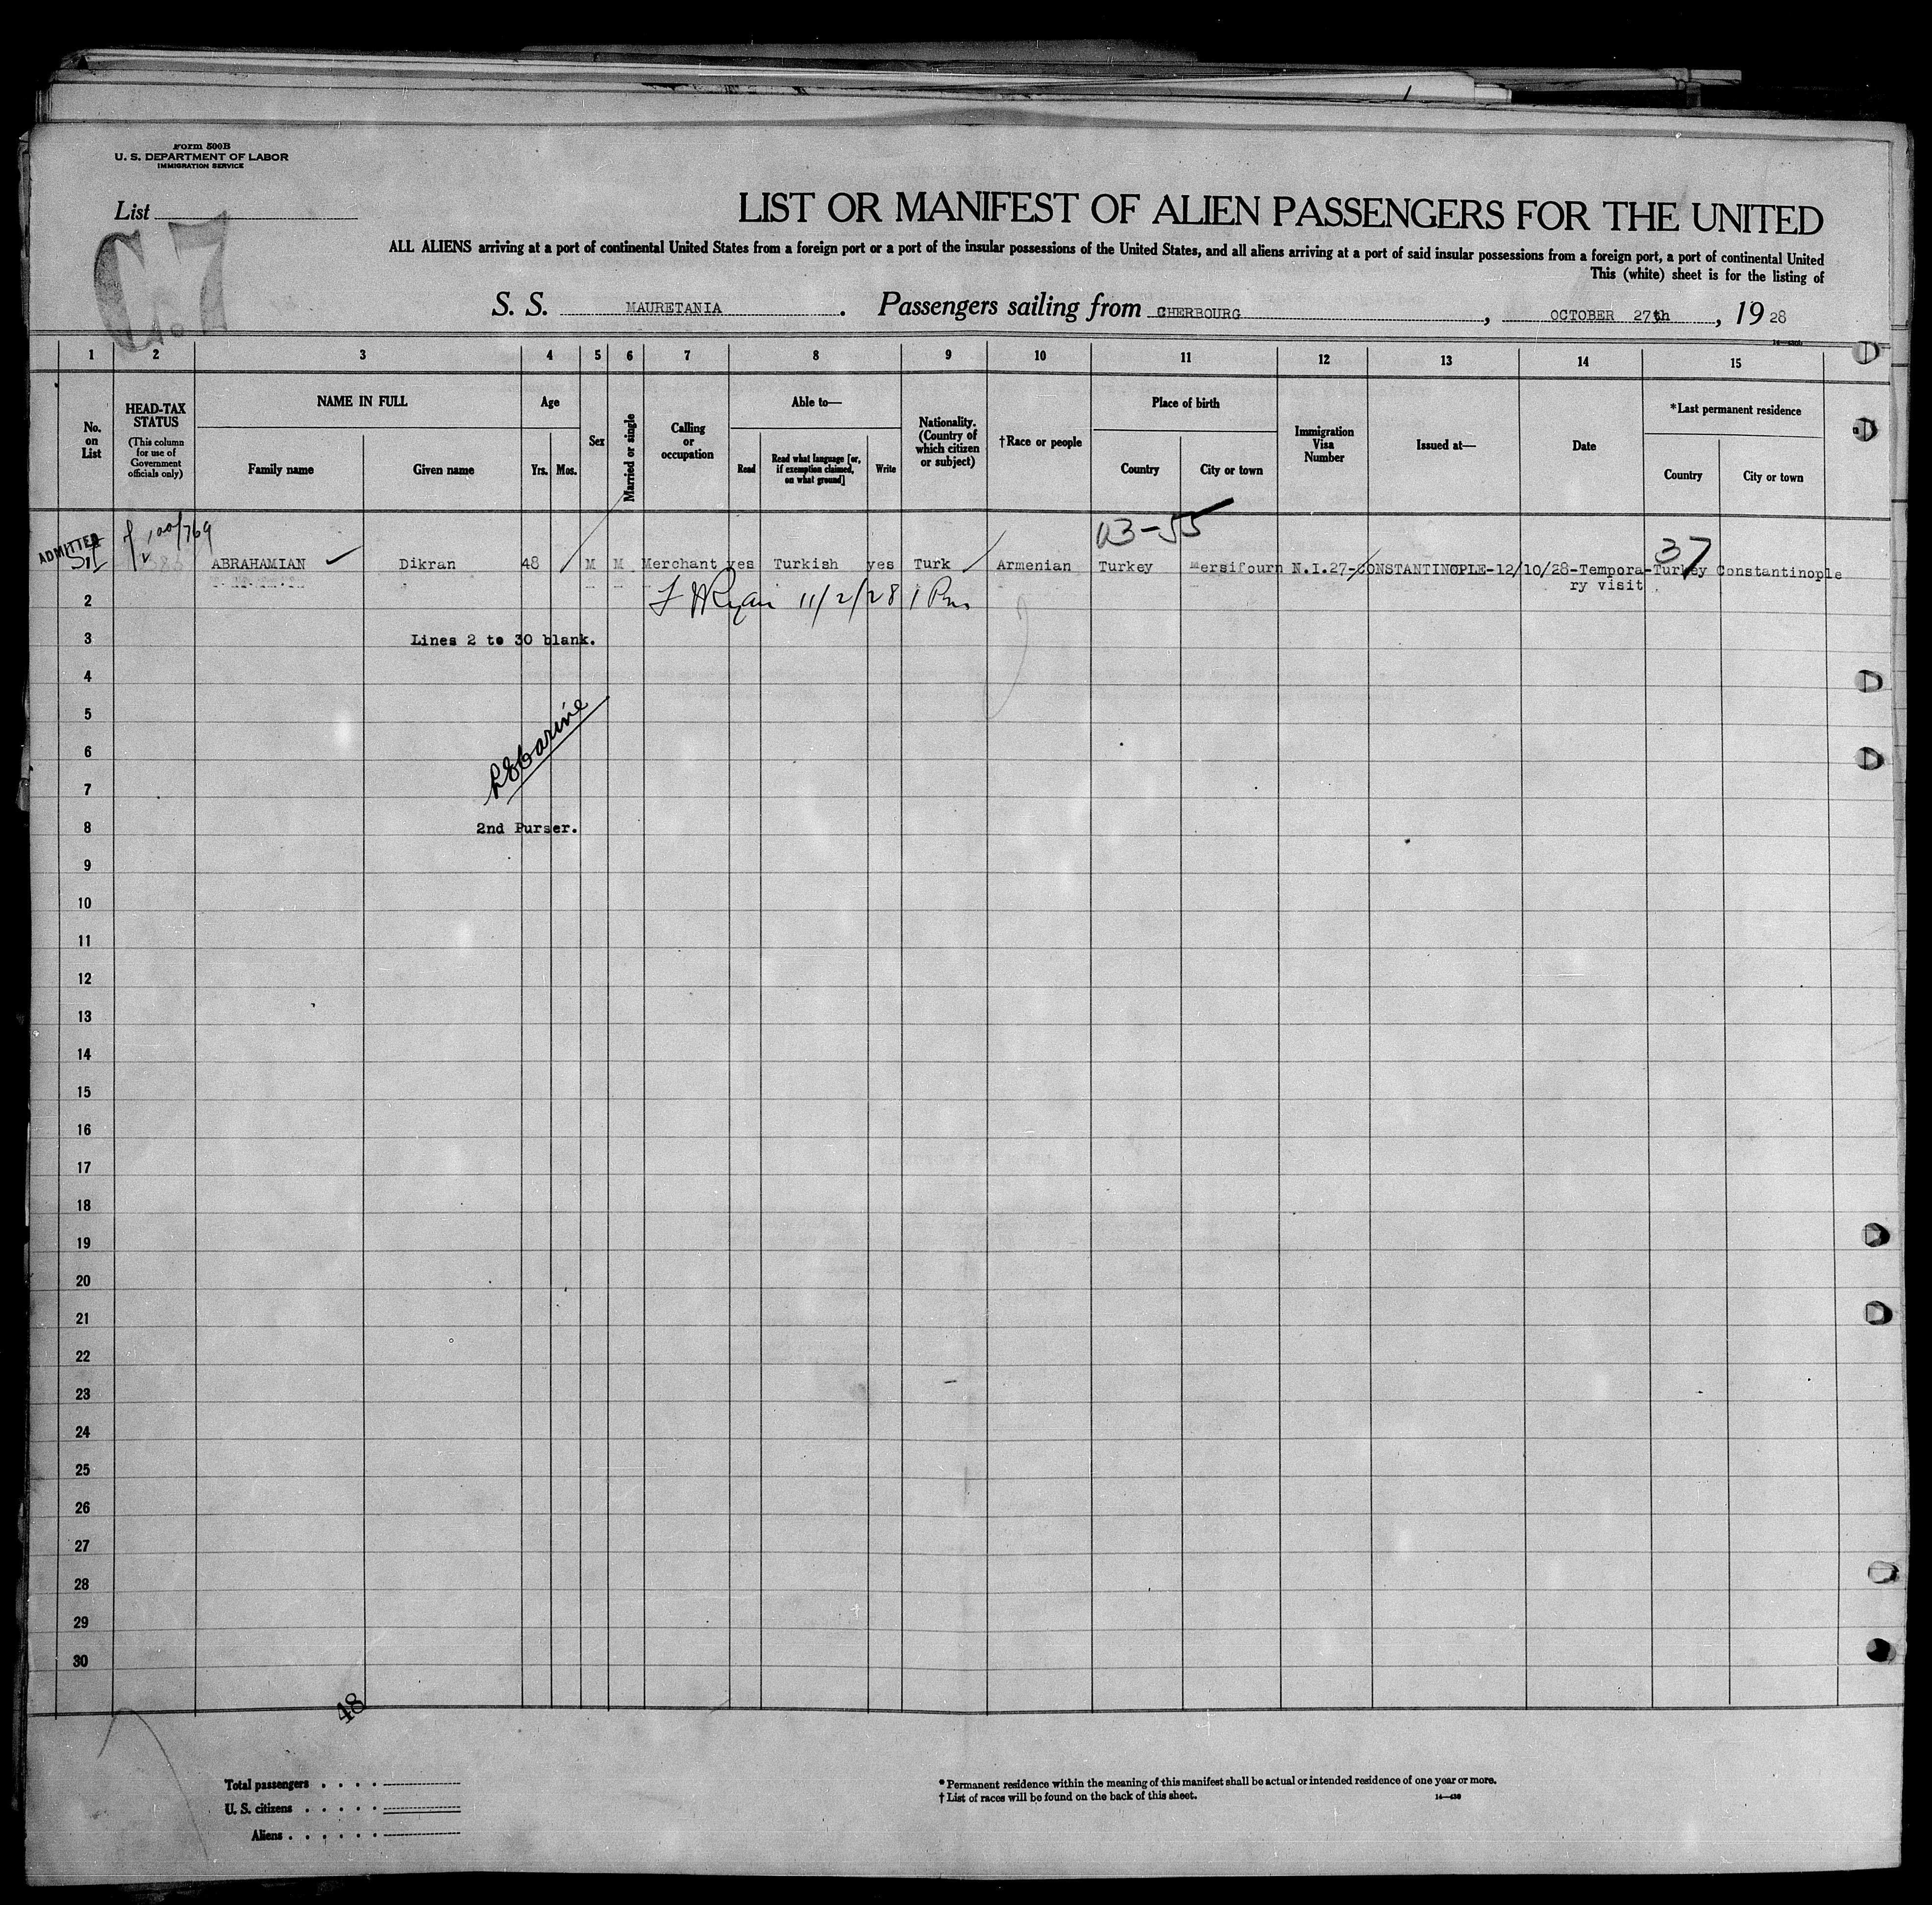 Form 500B
U. S. DEPARTMENT OF LABOR
IMMIGRATION SERVICE
List
C.7
LIST OR MANIFEST OF ALIEN PASSENGERS FOR THE UNITED
ALL ALIENS arriving at a port of continental United States from a foreign port or a port of the insular possessions of the United States, and all aliens arriving at a port of said insular possessions from a foreign port, a port of continental United
This (white) sheet is for the listing of
S. S. MAURETANIA. Passengers sailing from CHERBOURG, OCTOBER 27th, 1928
1 2 3 4 5 6 7 8 9 10 11 12 13 14 15
No. on List
HEAD-TAX STATUS (This column for use of Government officials only)
NAME IN FULL
Family name
Given name
Age
Yrs. Mos.
Sex
Married or single
Calling or occupation
Able to—
Read
Read what language [or, if exemption claimed, on what ground]
Write
Nationality. (Country of which citizen or subject)
†Race or people
Place of birth
Country
City or town
Immigration Visa Number
Issued at—
Date
*Last permanent residence
Country
City or town
100/769
03-55
37
ADMITTED
ABRAHAMIAN Dikran 48 M M Merchant yes Turkish yes Turk Armenian Turkey Mersifourn N.I.27-CONSTANTINOPLE-12/10/28-Tempora-Turkey Constantinople
ry visit
2
Ryan 11/2/28
3
Lines 2 to 30 blank.
4
5
6
7
8
2nd Purser.
9
10
11
12
13
14
15
16
17
18
19
20
21
22
23
24
25
26
27
28
29
30
48
Total passengers . . . .
U. S. citizens . . . . .
Aliens . . . . . .
* Permanent residence within the meaning of this manifest shall be actual or intended residence of one year or more.
† List of races will be found on the back of this sheet.
14—430